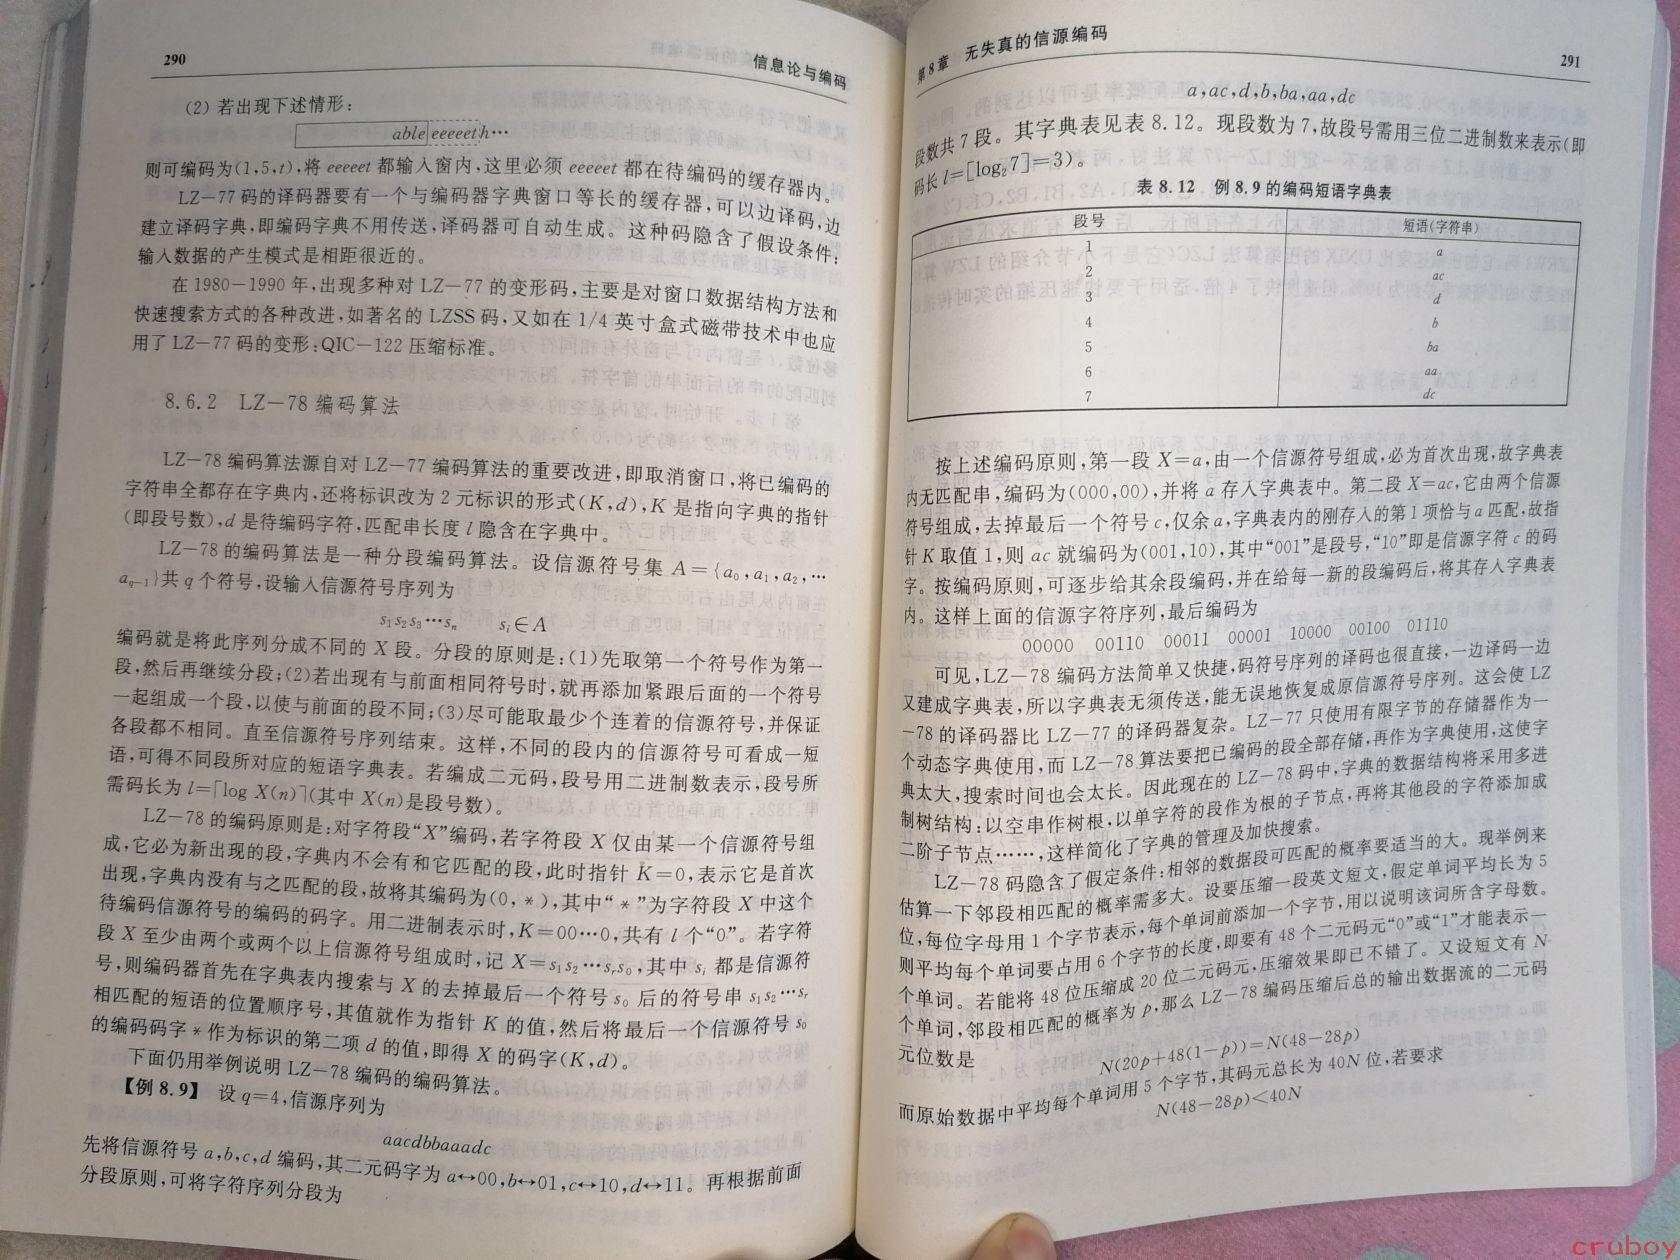 290
信息论与编码
(2) 若出现下述情形:
able eeeeet h…
则可编码为(1,5,t),将 eeeeet 都输入窗内,这里必须 eeeeet 都在待编码的缓存器内。
LZ—77 码的译码器要有一个与编码器字典窗口等长的缓存器,可以边译码,边
建立译码字典,即编码字典不用传送,译码器可自动生成。这种码隐含了假设条件:
输入数据的产生模式是相距很近的。
在 1980—1990 年,出现多种对 LZ—77 的变形码,主要是对窗口数据结构方法和
快速搜索方式的各种改进,如著名的 LZSS 码,又如在 1/4 英寸盒式磁带技术中也应
用了 LZ—77 码的变形:QIC—122 压缩标准。
8.6.2 LZ—78 编码算法
LZ—78 编码算法源自对 LZ—77 编码算法的重要改进,即取消窗口,将已编码的
字符串全都存在字典内,还将标识改为 2 元标识的形式(K,d),K 是指向字典的指针
(即段号数),d 是待编码字符,匹配串长度 l 隐含在字典中。
LZ—78 的编码算法是一种分段编码算法。设信源符号集 A={a₀,a₁,a₂,…
a_{q−1}}共 q 个符号,设输入信源符号序列为
s₁s₂s₃…sₙ sᵢ∈A
编码就是将此序列分成不同的 X 段。分段的原则是:(1)先取第一个符号作为第一
段,然后再继续分段;(2)若出现有与前面相同符号时,就再添加紧跟后面的一个符号
一起组成一个段,以使与前面的段不同;(3)尽可能取最少个连着的信源符号,并保证
各段都不相同。直至信源符号序列结束。这样,不同的段内的信源符号可看成一短
语,可得不同段所对应的短语字典表。若编成二元码,段号用二进制数表示,段号所
需码长为 l=⌈log X(n)⌉(其中 X(n)是段号数)。
LZ—78 的编码原则是:对字符段“X”编码,若字符段 X 仅由某一个信源符号组
成,它必为新出现的段,字典内不会有和它匹配的段,此时指针 K=0,表示它是首次
出现,字典内没有与之匹配的段,故将其编码为(0,*),其中“*”为字符段 X 中这个
待编码信源符号的编码的码字。用二进制表示时,K=00…0,共有 l 个“0”。若字符
段 X 至少由两个或两个以上信源符号组成时,记 X=s₁s₂…sᵣs₀,其中 sᵢ 都是信源符
号,则编码器首先在字典表内搜索与 X 的去掉最后一个符号 s₀ 后的符号串 s₁s₂…sᵣ
相匹配的短语的位置顺序号,其值就作为指针 K 的值,然后将最后一个信源符号 s₀
的编码码字 * 作为标识的第二项 d 的值,即得 X 的码字(K,d)。
下面仍用举例说明 LZ—78 编码的编码算法。
【例 8.9】 设 q=4,信源序列为
aacdbbaaadc
先将信源符号 a,b,c,d 编码,其二元码字为 a↔00,b↔01,c↔10,d↔11。再根据前面
分段原则,可将字符序列分段为
第 8 章 无失真的信源编码
291
a,ac,d,b,ba,aa,dc
段数共 7 段。其字典表见表 8.12。现段数为 7,故段号需用三位二进制数来表示(即
码长 l=[log₂7]=3)。
表 8.12 例 8.9 的编码短语字典表
段号 短语(字符串)
1 a
2 ac
3 d
4 b
5 ba
6 aa
7 dc
按上述编码原则,第一段 X=a,由一个信源符号组成,必为首次出现,故字典表
内无匹配串,编码为(000,00),并将 a 存入字典表中。第二段 X=ac,它由两个信源
符号组成,去掉最后一个符号 c,仅余 a,字典表内的刚存入的第 1 项恰与 a 匹配,故指
针 K 取值 1,则 ac 就编码为(001,10),其中“001”是段号,“10”即是信源字符 c 的码
字。按编码原则,可逐步给其余段编码,并在给每一新的段编码后,将其存入字典表
内。这样上面的信源字符序列,最后编码为
00000 00110 00011 00001 10000 00100 01110
可见,LZ—78 编码方法简单又快捷,码符号序列的译码也很直接,一边译码一边
又建成字典表,所以字典表无须传送,能无误地恢复成原信源符号序列。这会使 LZ
—78 的译码器比 LZ—77 的译码器复杂。LZ—77 只使用有限字节的存储器作为一
个动态字典使用,而 LZ—78 算法要把已编码的段全部存储,再作为字典使用,这使字
典太大,搜索时间也会太长。因此现在的 LZ—78 码中,字典的数据结构将采用多进
制树结构:以空串作树根,以单字符的段作为根的子节点,再将其他段的字符添加成
二阶子节点……,这样简化了字典的管理及加快搜索。
LZ—78 码隐含了假定条件:相邻的数据段可匹配的概率要适当的大。现举例来
估算一下邻段相匹配的概率需多大。设要压缩一段英文短文,假定单词平均长为 5
位,每位字母用 1 个字节表示,每个单词前添加一个字节,用以说明该词所含字母数。
则平均每个单词要占用 6 个字节的长度,即要有 48 个二元码元“0”或“1”才能表示一
个单词。若能将 48 位压缩成 20 位二元码元,压缩效果即已不错了。又设短文有 N
个单词,邻段相匹配的概率为 p,那么 LZ—78 编码压缩后总的输出数据流的二元码
元位数是
N(20p+48(1−p))=N(48−28p)
而原始数据中平均每个单词用 5 个字节,其码元总长为 40N 位,若要求
N(48−28p)<40N
cruboy